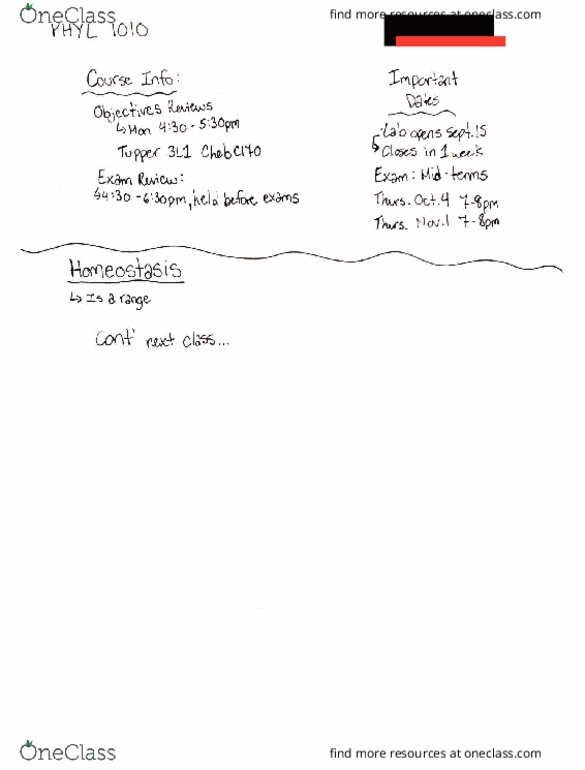 OneClass
find more resources at oneclass.com
PHYL 1010
Course Info:
Objectives Reviews
↳ Mon 4:30 - 5:30pm
Tupper 3L1 Cheb C170
Exam Review:
↳ 4:30 - 6:30pm, held before exams
Important
Dates
Lab opens sept.15
Closes in 1 week
Exam: Mid-terms
Thurs. Oct.4 7-8pm
Thurs. Nov.1 7-8pm
Homeostasis
↳ Is a range
Cont' next class...
OneClass
find more resources at oneclass.com